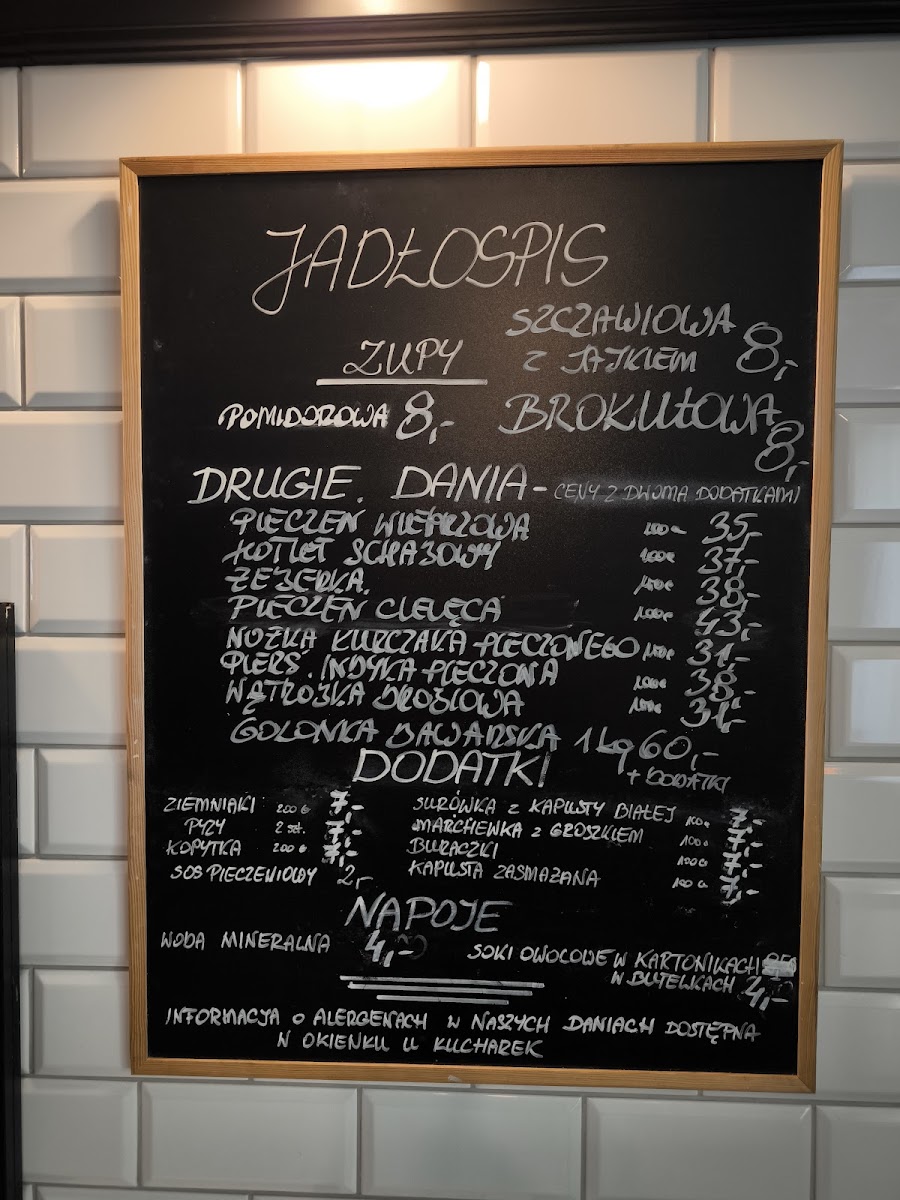 JADŁOSPIS
ZUPY
POMIDOROWA 8,-
SZCZAWIOWA
Z JAJKIEM 8,-
BROKUŁOWA
8,-
DRUGIE DANIA - CENY Z DWOMA DODATKAMI
PIECZEŃ WIEPRZOWA 100G 35,-
KOTLET SCHABOWY 100G 37,-
ŻEBERKA 38,-
PIECZEŃ CIELĘCA 100G 43,-
NÓŻKA KURCZAKA PIECZONEGO 31,-
PIERŚ INDYKA PIECZONA 100G 38,-
WĄTRÓBKA DROBIOWA 31,-
GOLONKA BAWARSKA 1 kg 60,-
+ DODATKI
DODATKI
ZIEMNIAKI 200G 7,-
PYZY 2 szt. 7,-
KOPYTKA 200G 7,-
SOS PIECZENIOWY 2,-
SURÓWKA Z KAPUSTY BIAŁEJ 100G 7,-
MARCHEWKA Z GROSZKIEM 100G 7,-
BURACZKI 100G 7,-
KAPUSTA ZASMAŻANA 100G 7,-
NAPOJE
WODA MINERALNA 4,-
SOKI OWOCOWE W KARTONIKACH
W BUTELKACH 4,-
INFORMACJA O ALERGENACH W NASZYCH DANIACH DOSTĘPNA
W OKIENKU U KUCHAREK